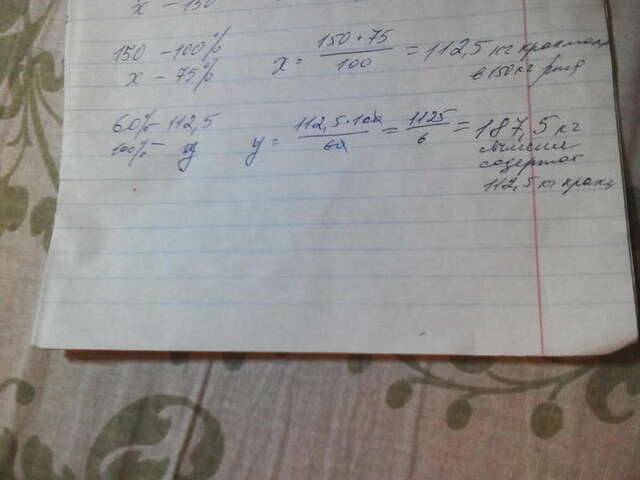 x — 150
150 — 100%
x — 75%
x = 150 · 75 / 100 = 112,5 кг крахмала
в 150 кг риса
60% — 112,5
100% — y
y = 112,5 · 100 / 60 = 1125 / 6 = 187,5 кг
ячменя
содержат
112,5 кг крахм